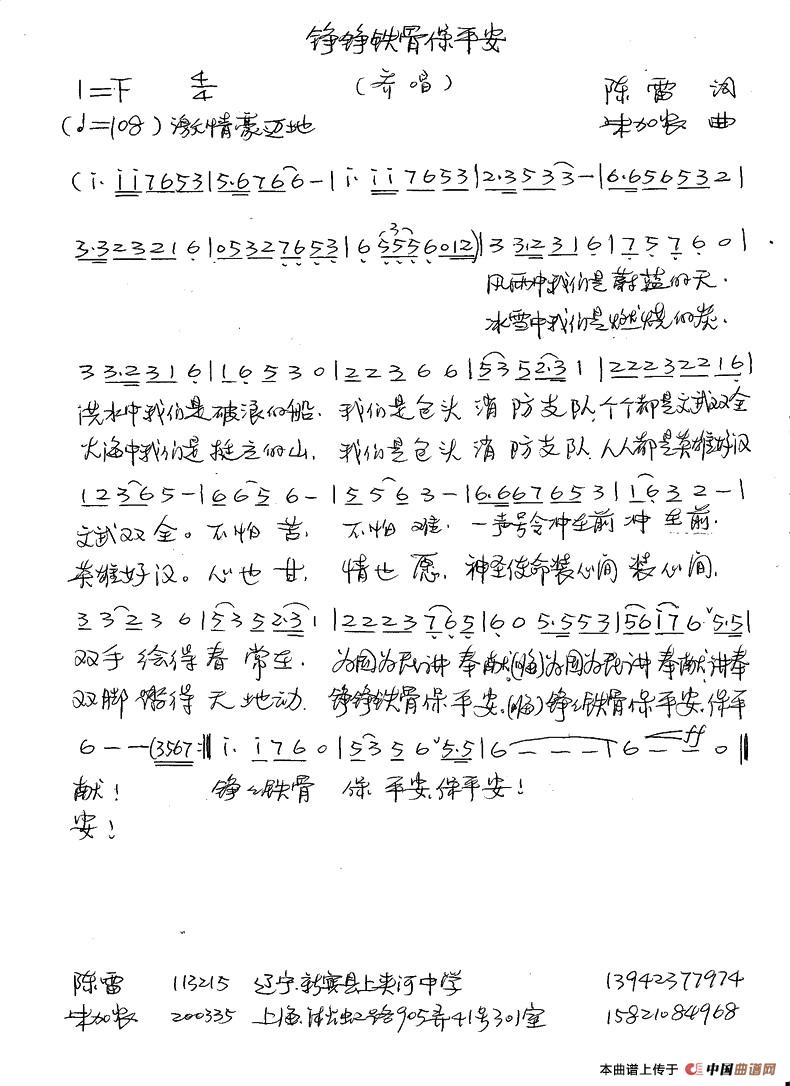 铮铮铁骨保平安
1=F 4/4 (齐唱) 陈雷 词
(♩=108) 激情豪迈地 加农 曲
(i. i i 7 6 5 3 | 5. 6 7 6 6 - | i. i i 7 6 5 3 | 2. 3 5 3 3 - | 6. 6 5 6 5 3 2 |
3. 3 2 3 2 1 6 | 0 5 3 2 7 6 5 3 | 6 5 5 5 6 0 1 2) | 3 3. 2 3 1 6 | 7 5 7 6 0 |
风雨中我们是蔚蓝的天.
冰雪中我们是燃烧的炭.
3 3. 2 3 1 6 | 1 6 5 3 0 | 2 2 3 6 6 | 5 3 5 2. 3 1 | 2 2 2 3 2 2 1 6 |
洪水中我们是破浪的船. 我们是包头 消 防支队,个个都是文武双全
大海中我们是挺立的山. 我们是包头 消 防支队,人人都是英雄好汉
1 2 3 6 5 - | 6 6 5 6 - | 5 5 6 3 - | 6. 6 6 7 6 5 3 | 1 6 3 2 - |
文武双全。不怕 苦, 不怕 难. 一声号令冲在前 冲 在前.
英雄好汉。心也 甘, 情也 愿. 神圣使命装心间 装心间.
3 3 2 3 6 | 5 3 5 2. 3 1 | 2 2 2 3 7 6 5 | 6 0 0 5. 5 5 3 | 5 6 i 7 6 ˇ 5. 5 |
双手 绘得春 常在. 为国为民讲奉献(嗨)为国为民讲奉献讲奉
双脚 踏得 天 地动. 铮铮铁骨保平安.(嗨)铮铮铁骨保平安.保平
6 - - (3567 :‖ i. i 7 6 0 | 5 3 5 6 ˇ 5. 5 | 6 - - - | 6 - - 0 ‖
ff
献! 铮铮铁骨 保 平安.保平安!
安!
陈雷 113215 辽宁.新宾县上夹河中学 13942377974
加农 200335 上海. 路905弄41号301室 15821084968
本曲谱上传于 中国曲谱网